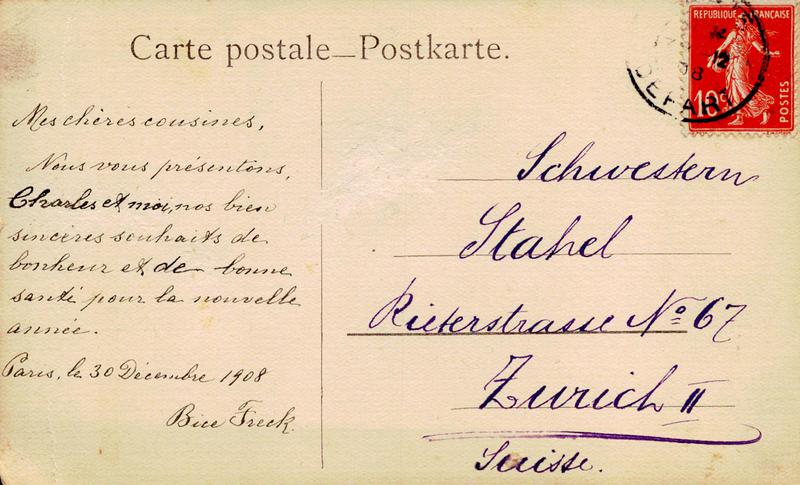 Carte postale—Postkarte.
RÉPUBLIQUE FRANÇAISE
10c
POSTES
12
08
DEPART
Mes chères cousines,
Nous vous présentons,
Charles et moi, nos bien
sincères souhaits de
bonheur et de bonne
santé pour la nouvelle
année.
Paris, le 30 Décembre 1908
Bice Freck.
Schwestern
Stahel
Rieterstrasse No 67
Zurich II
Suisse.